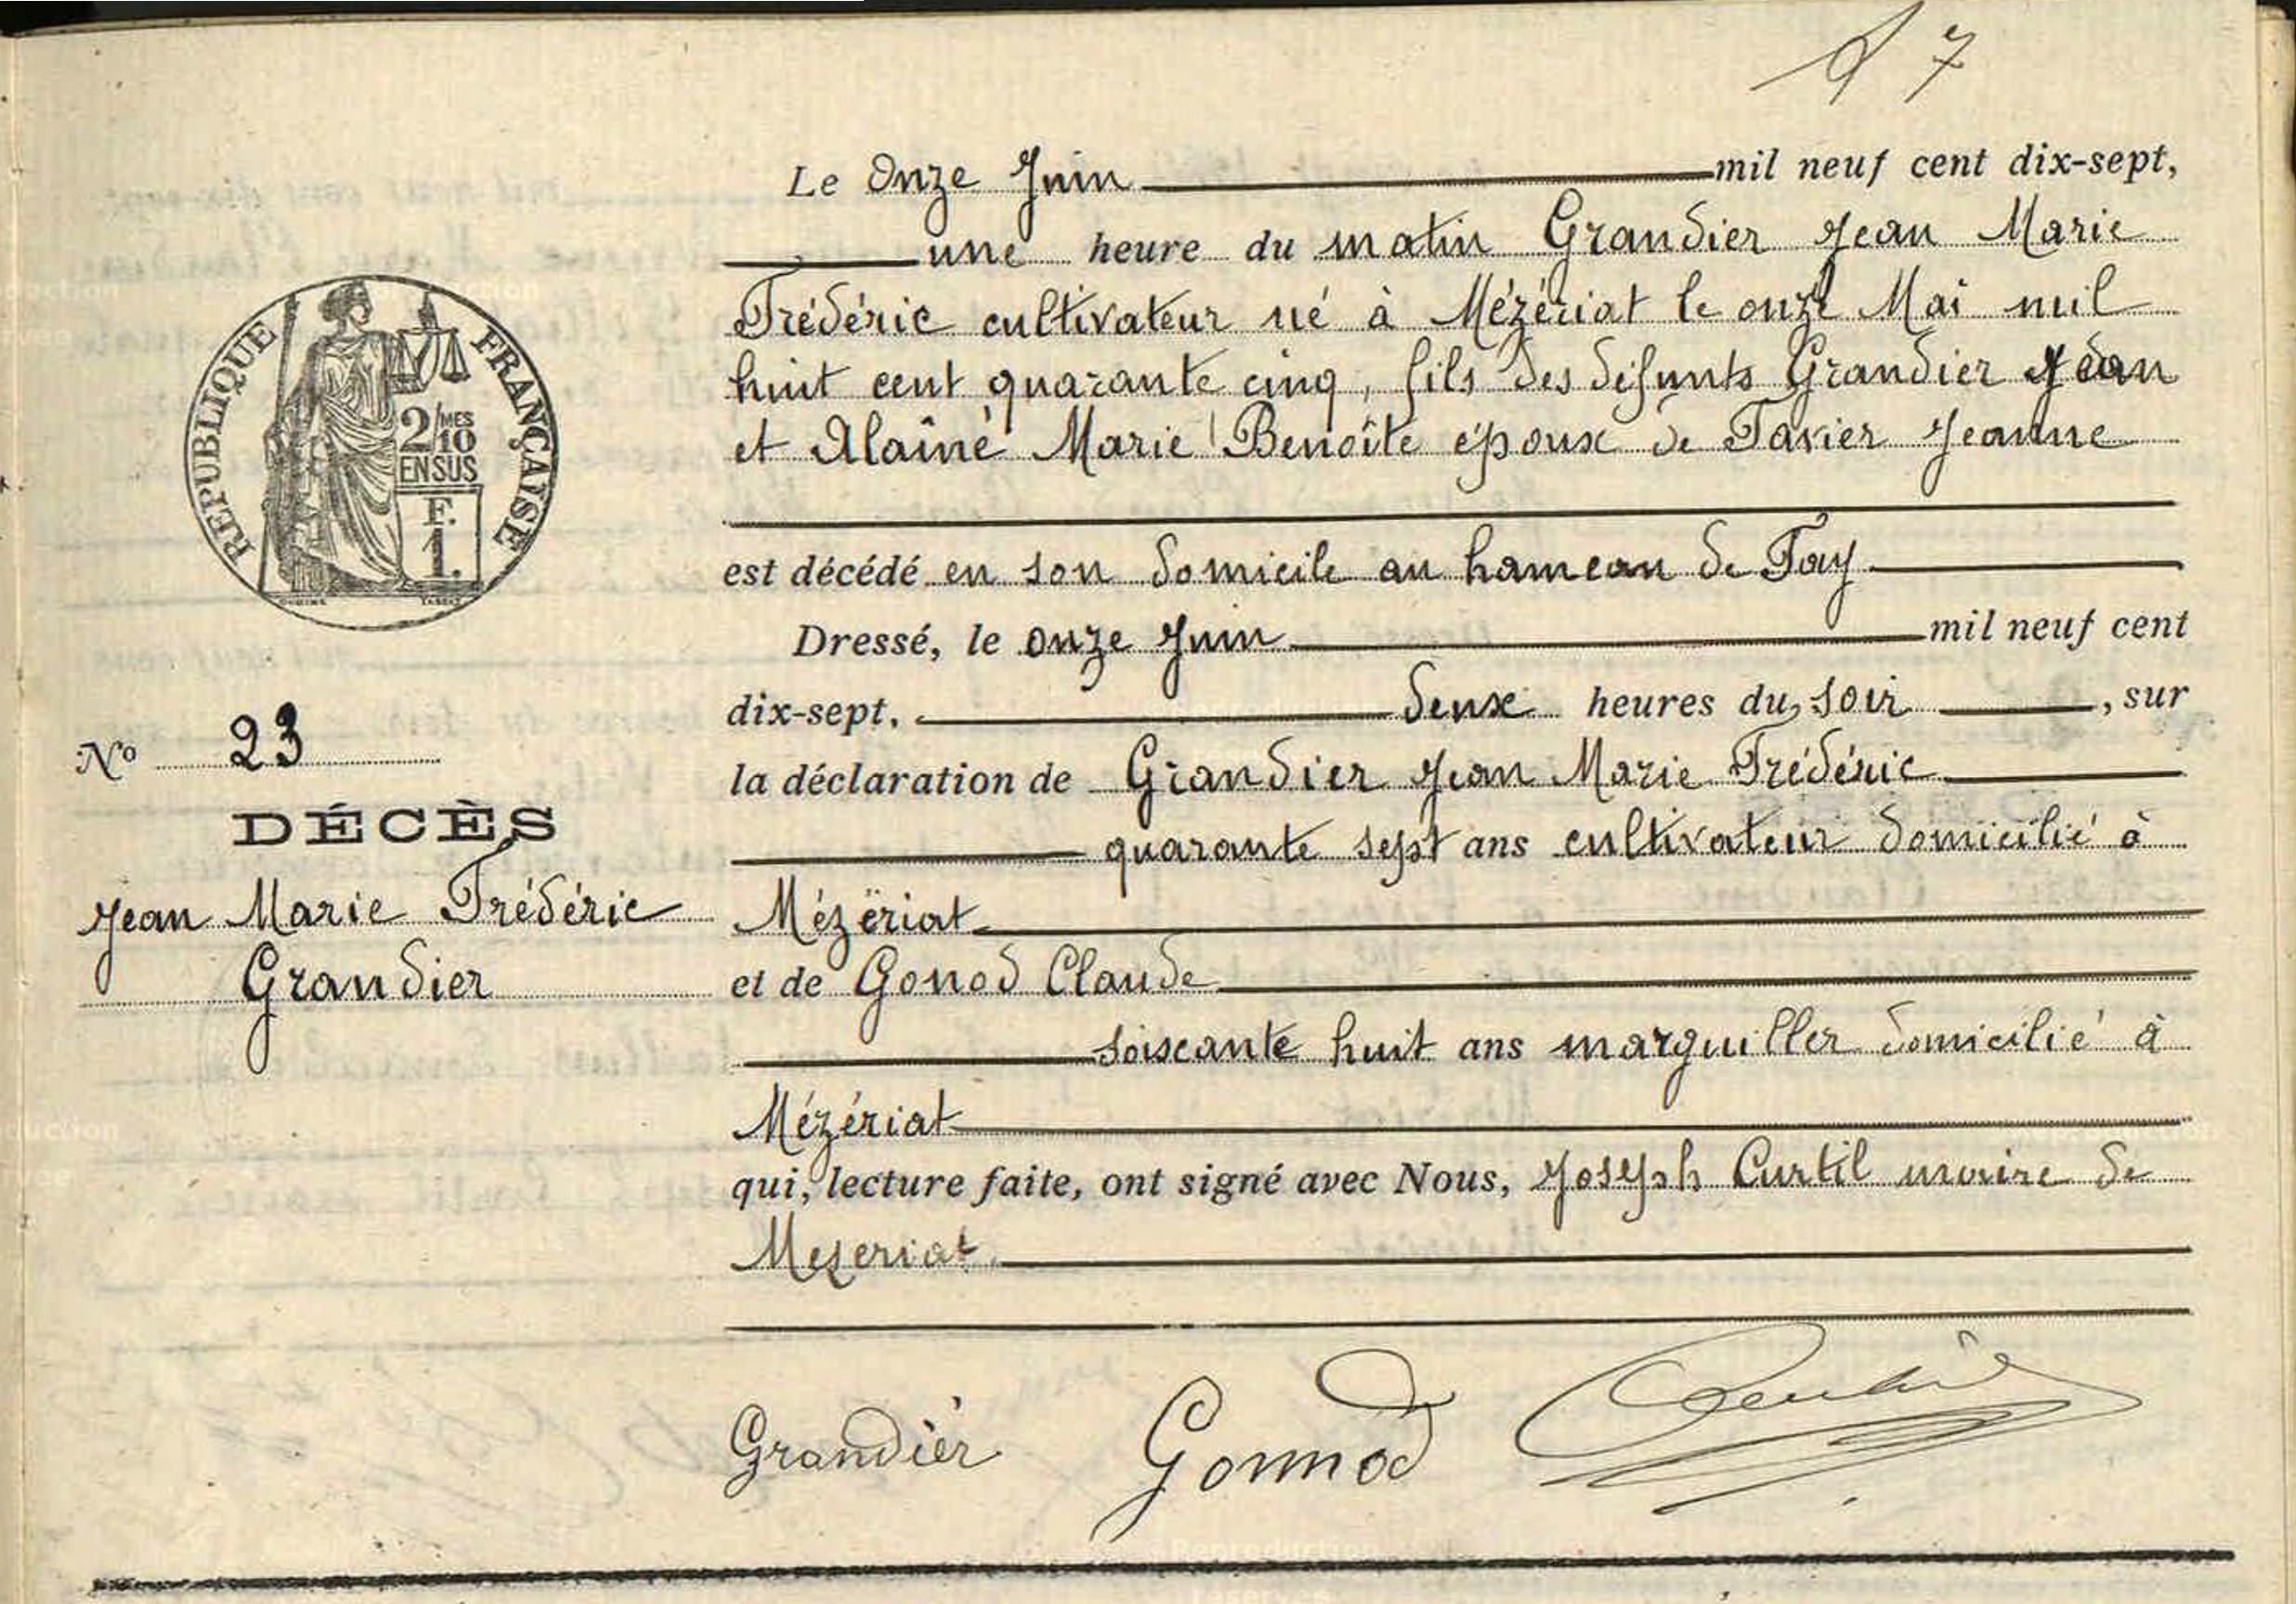 17
Le Onze Juin mil neuf cent dix-sept,
une heure du matin Grandier Jean Marie
Frédéric cultivateur né à Mézériat le onze Mai mil
huit cent quarante cinq, fils des défunts Grandier Jean
et Alainé Marie Benoîte époux de Favier Jeanne
est décédé en son domicile au hameau de Fay
Dressé, le onze Juin mil neuf cent
dix-sept, deux heures du soir, sur
la déclaration de Grandier Jean Marie Frédéric
quarante sept ans cultivateur domicilié à
Mézériat
et de Gonod Claude
soixante huit ans marguiller domicilié à
Mézériat
qui, lecture faite, ont signé avec Nous, Joseph Curtil maire de
Mezeriat.
REPUBLIQUE FRANÇAISE
2/MES
10
EN SUS
F.
1.
No 23
DÉCÈS
Jean Marie Frédéric
Grandier
Grandier Gonnod